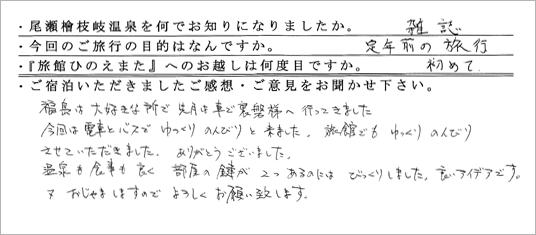 ・尾瀬檜枝岐温泉を何でお知りになりましたか。 雑誌
・今回のご旅行の目的はなんですか。 定年前の旅行
・『旅館ひのえまた』へのお越しは何度目ですか。 初めて
・ご宿泊いただきましたご感想・ご意見をお聞かせ下さい。
福島は大好きな所で先月は車で裏磐梯へ行ってきました
今回は電車とバスでゆっくりのんびりと来ました。旅館でもゆっくりのんびり
させていただきました。ありがとうございました。
温泉も食事も良く 部屋の鍵が2つあるのにはびっくりしました。良いアイデアです。
又おじゃましますのでよろしくお願い致します。